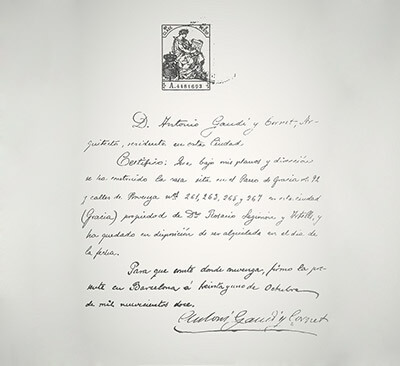 A.4481603
D. Antonio Gaudí y Cornet, Ar-
quitecto, residente en esta Ciudad.
Certifico: Que bajo mis planos y dirección
se ha construido la casa sita en el Paseo de Gracia nº 92
y calles de Provenza nos 261, 263, 265 y 267 en esta ciudad
(Gracia) propiedad de Dña Rosario Segimón y Artells, y
ha quedado en disposición de ser alquilada en el día de
la fecha.
Para que conste donde convenga, firmo la pre-
sente en Barcelona á treinta y uno de Octubre
de mil novecientos doce.
Antoni Gaudí y Cornet